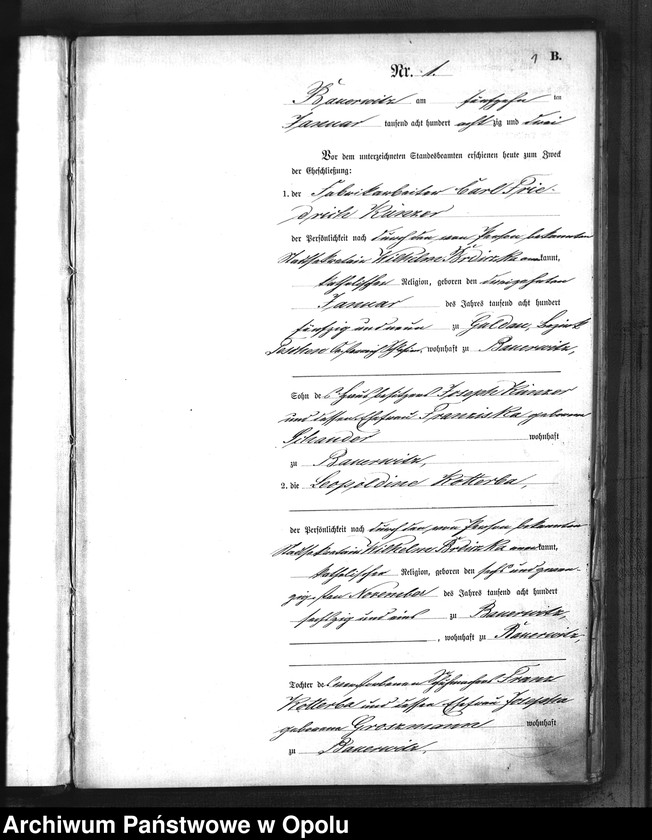 1 B.
Nr. 1.
Bauerwitz am fünfzehn ten
Januar tausend acht hundert acht zig und drei
Vor dem unterzeichneten Standesbeamten erschienen heute zum Zweck
der Eheschließung:
1. der Fabrikarbeiter Carl Frie-
drich Künzer
der Persönlichkeit nach durch den von Person bekannten
Stadtsekretair Wilhelm kannt,
katholischer Religion, geboren den dreizehnten
Januar des Jahres tausend acht hundert
fünfzig und neun zu Bezirk
wohnhaft zu Bauerwitz,
Sohn des Hausbesitzers Joseph Künzer
und dessen Ehefrau Franziska geborenen
wohnhaft
zu Bauerwitz,
2. die Leopoldine Kotterba,
der Persönlichkeit nach durch den von Person bekannten
Stadtsekretair Wilhelm kannt,
katholischer Religion, geboren den sechs und zwan-
zigsten November des Jahres tausend acht hundert
sechszig und eins zu Bauerwitz,
, wohnhaft zu Bauerwitz,
Tochter des verstorbenen Franz
Kotterba und dessen Ehefrau Josepha
geborene Groszmann wohnhaft
zu Bauerwitz,
Archiwum Państwowe w Opolu